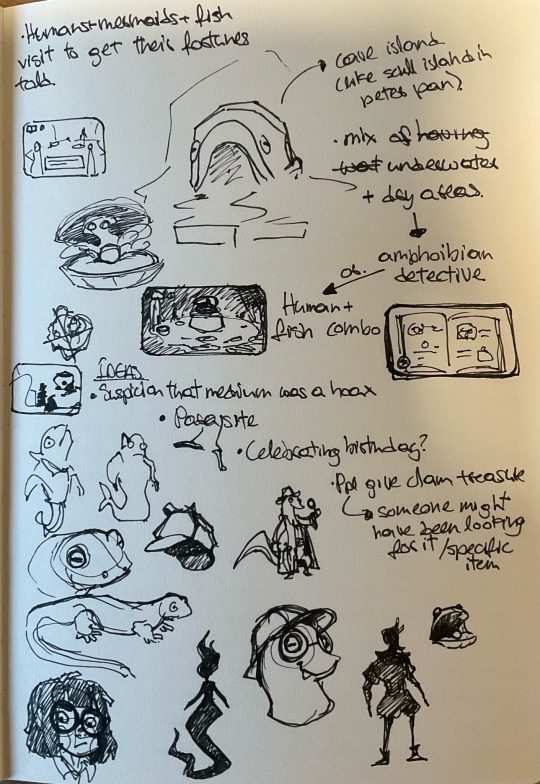 • Humans + mermaids + fish
visit to get their fortunes
told.
cave island
(like skull island in
peter pan).
• mix of having
underwater
+ dry areas.
amphoibian
detective
or.
Human +
fish combo
IDEAS
• Suspicion that medium was a hoax
•
• Celebrating birthday?
• Ppl give clam treasure
someone might
have been looking
for it / specific
item